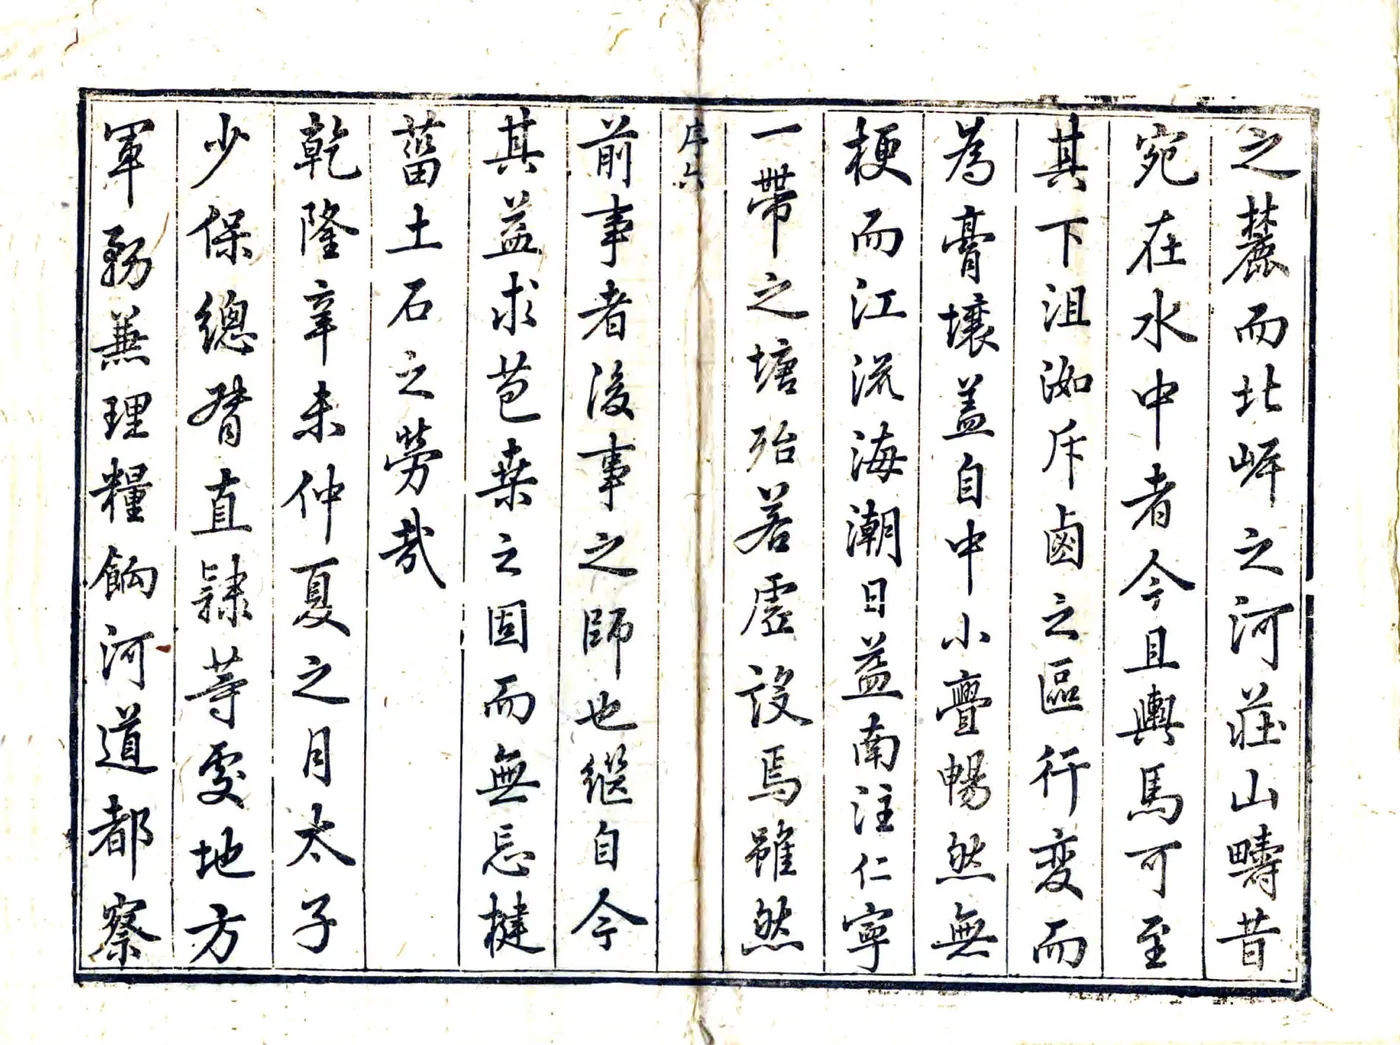 之麓而北岸之河莊山疇昔
宛在水中者今且輿馬可至
其下沮洳斥鹵之區行変而
為膏壤盖自中小亹暢然無
梗而江流海潮日益南注仁寧
一帶之塘殆若虛設焉雖然
序六
前事者後事之師也繼自今
其益求苞桒之固而無忘楗
菑土石之勞哉
乾隆辛未仲夏之月太子
少保總督直隸等處地方
軍務兼理糧餉河道都察